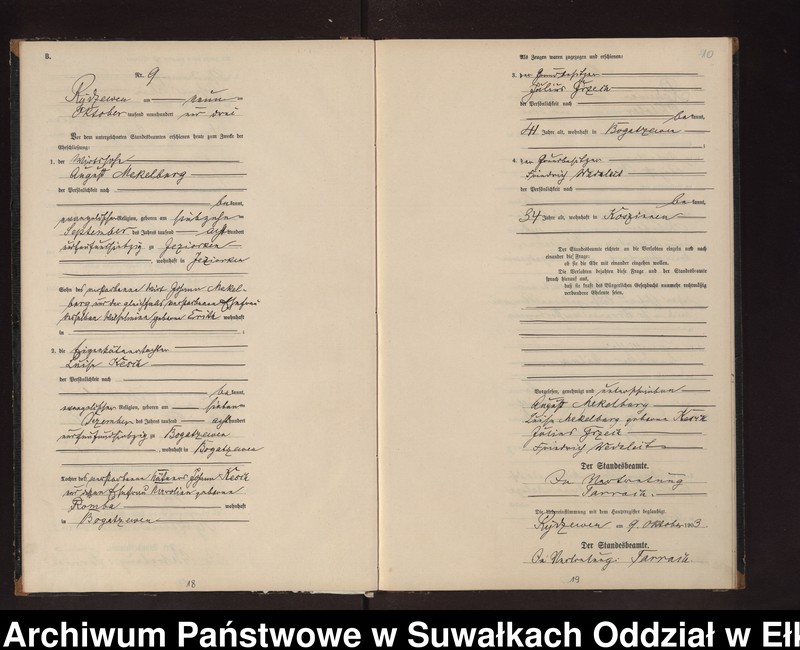 B.
Nr. 9
Rydzewen am neun
Oktober tausend neunhundert und drei
Vor dem unterzeichneten Standesbeamten erschienen heute zum Zwecke der
Eheschließung:
1. der Wirtssohn
August Mekelburg
der Persönlichkeit nach
be kannt,
evangelischer Religion, geboren am
September des Jahres tausend acht hundert
zu Jeziorken
, wohnhaft in Jeziorken
Sohn des verstorbenen Wirt Johann Mekel-
burg und der gleichfalls verstorbenen Ehefrau
desselben Wilhelmine geborene wohnhaft
in ;
2. die Eigenkätnertochter
Luise
der Persönlichkeit nach
be kannt,
evangelischer Religion, geboren am sieben
Dezember des Jahres tausend acht hundert
zu Bogatzewen
, wohnhaft in Bogatzewen
Tochter des verstorbenen Kätners Johann
und dessen Ehefrau Karoline geborene
Romba wohnhaft
in Bogatzewen
18
Als Zeugen waren zugezogen und erschienen:
10
3. der Grundbesitzer
Julius
der Persönlichkeit nach
be kannt,
41 Jahre alt, wohnhaft in Bogatzewen
;
4. der Grundbesitzer
Friedrich
der Persönlichkeit nach
be kannt,
34 Jahre alt, wohnhaft in Koszinnen
Der Standesbeamte richtete an die Verlobten einzeln und nach
einander die Frage:
ob sie die Ehe mit einander eingehen wollen.
Die Verlobten bejahten diese Frage und der Standesbeamte
sprach hierauf aus,
daß sie kraft des Bürgerlichen Gesetzbuchs nunmehr rechtmäßig
verbundene Eheleute seien.
Vorgelesen, genehmigt und unterschrieben
August Mekelburg
Luise Mekelburg geborene
Julius
Friedrich
Der Standesbeamte.
In Vertretung
Tarrach.
Die Übereinstimmung mit dem Hauptregister beglaubigt.
Rydzewen am 9. Oktober 1903
Der Standesbeamte.
In Vertretung Tarrach.
19
Archiwum Państwowe w Suwałkach Oddział w Ełk